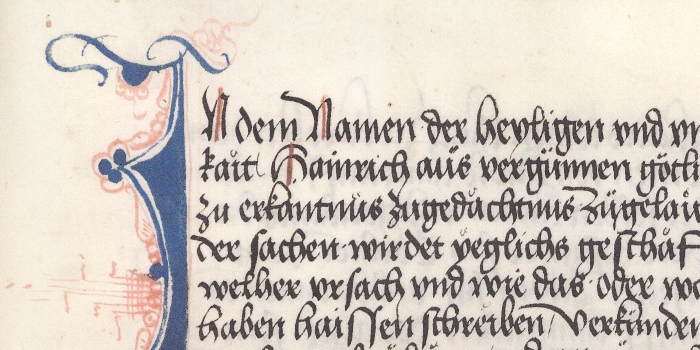 IN dem Namen der heyligen vnd vn
kait Hainrich aüs vergünnen götli
zu erkantnüs zugedächtnus zügelait
der sachen wirdet yeglichs geschäf
welher vrsach vnd wie das oder wo
haben haissen schreiben verkünden